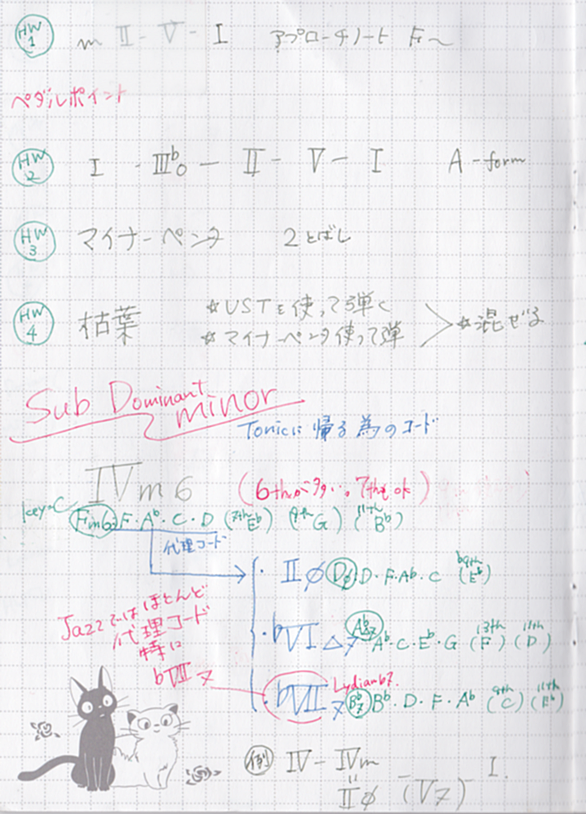 HW 1 m II - V - I アプローチノート
ペダルポイント
HW 2 I - IIIb o - II - V - I A-form
HW 3 マイナーペンタ 2とばし
HW 4 枯葉 ☆USTを使って弾く
☆マイナーペンタ使って弾 ☆混ぜる
Sub Dominant minor
Tonicに帰る為のコード
IVm6 (6thが多い。7thもok)
key=C Fm6 F・Ab・C・D (7th Eb) (9th G) (11th Bb)
代理コード
・IIø Dø D・F・Ab・C (b9th Eb)
・bVI△7 Ab△7 Ab・C・Eb・G (13th F) (11th D)
Jazzではほとんど
代理コード
特に
bVII7
Lydian b7.
・bVII7 Bb7 Bb・D・F・Ab (9th C) (11th Eb)
例 IV - IVm I.
=
IIø - (V7)